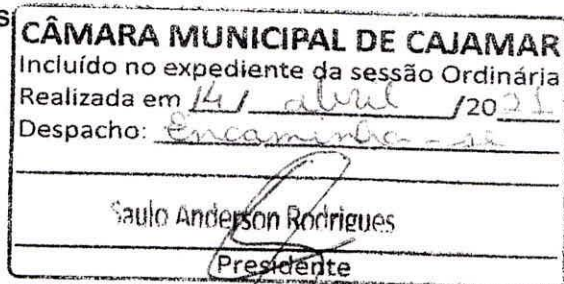 CÂMARA MUNICIPAL DE CAJAMAR
Incluído no expediente da sessão Ordinária
Realizada em 14 / abril /2021
Despacho: Encaminha-se
Saulo Anderson Rodrigues
Presidente